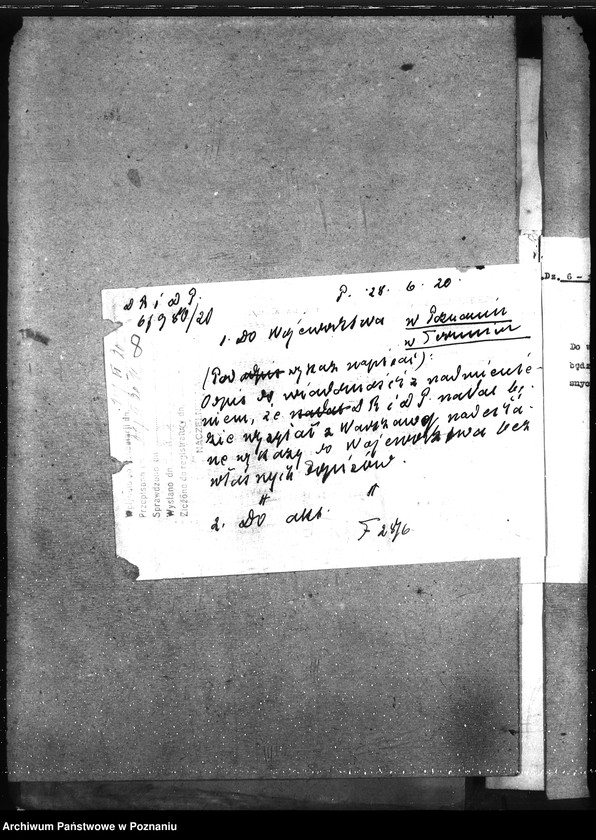 D R i D P.
P. 28. 6. 20.
6/980/20
1. Do Województwa w Poznaniu
w Toruniu
(Pod odpis wykaz napisać):
Odpis do wiadomości z nadmienie-
niem, że nadal D R i D P. nadal bę-
dzie wysyłał z Warszawy nadesła-
ne wykazy do Województwa bez
własnych dopisków.
2. Do akt.
F 28/6
Przepisano
Sprawdzono
Wysłano dn.
Złożono do registratury dn.
NACZEL
Dz. 6 -
Do w
będz
snyc
Archiwum Państwowe w Poznaniu